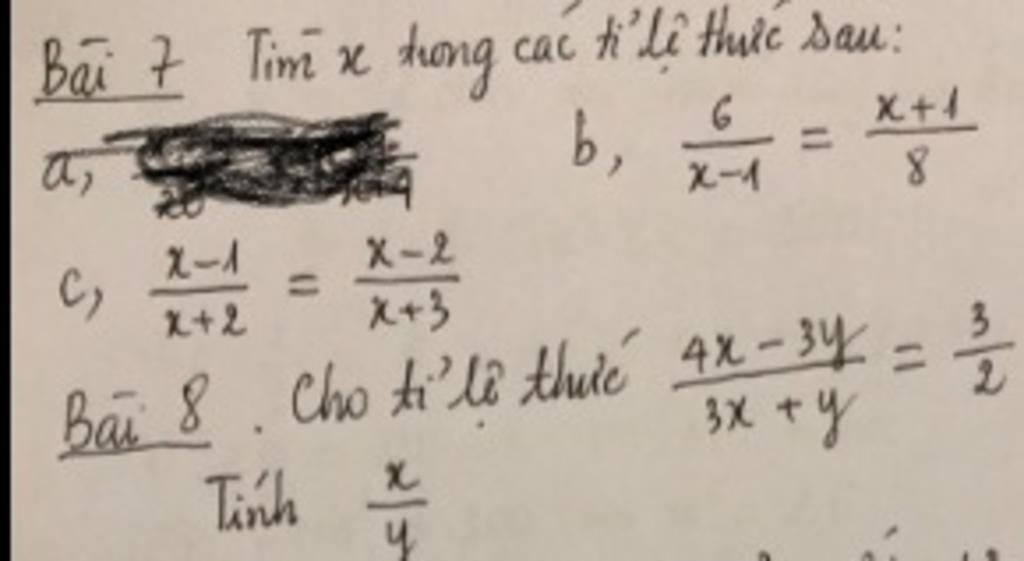 Bài 7 Tìm x trong các tỉ lệ thức sau:
a, b, 6/(x-1) = (x+1)/8
c, (x-1)/(x+2) = (x-2)/(x+3)
Bài 8. Cho tỉ lệ thức (4x-3y)/(3x+y) = 3/2
Tính x/y